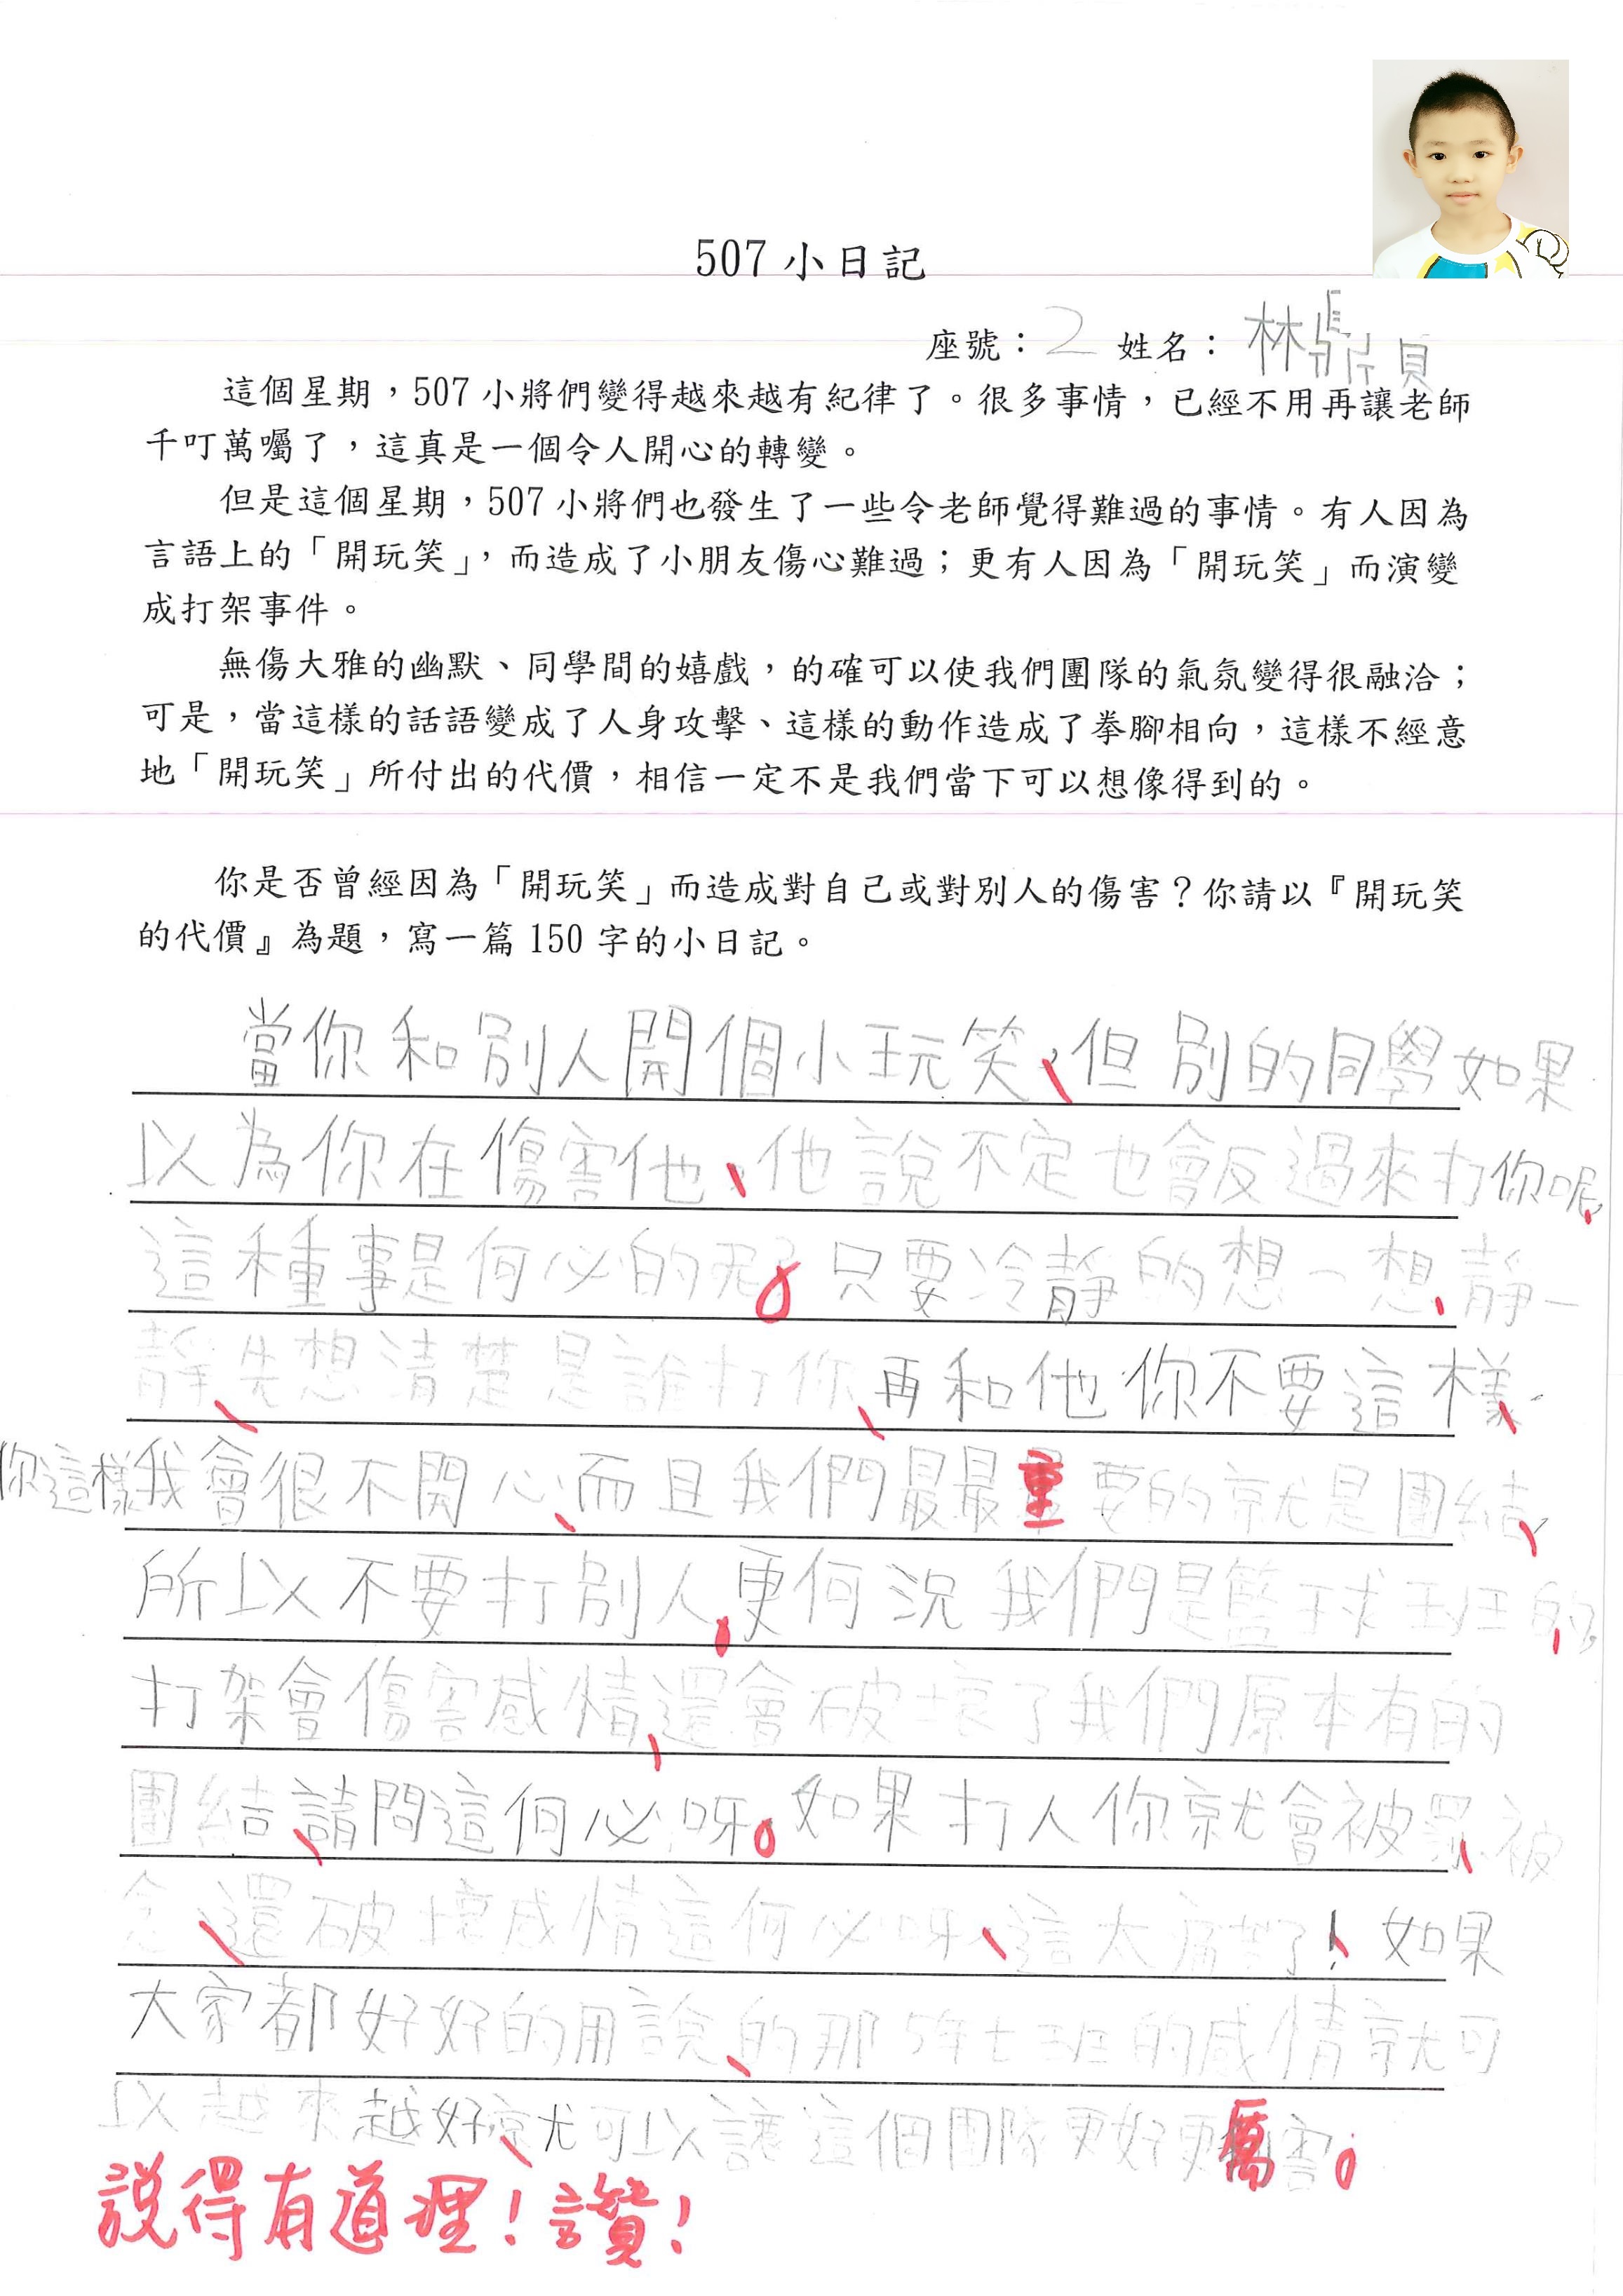 507 小日記
座號：2 姓名：林
這個星期，507 小將們變得越來越有紀律了。很多事情，已經不用再讓老師
千叮萬囑了，這真是一個令人開心的轉變。
但是這個星期，507 小將們也發生了一些令老師覺得難過的事情。有人因為
言語上的「開玩笑」，而造成了小朋友傷心難過；更有人因為「開玩笑」而演變
成打架事件。
無傷大雅的幽默、同學間的嬉戲，的確可以使我們團隊的氣氛變得很融洽；
可是，當這樣的話語變成了人身攻擊、這樣的動作造成了拳腳相向，這樣不經意
地「開玩笑」所付出的代價，相信一定不是我們當下可以想像得到的。
你是否曾經因為「開玩笑」而造成對自己或對別人的傷害？你請以『開玩笑
的代價』為題，寫一篇 150 字的小日記。
當你和別人開個小玩笑，但別的同學如果
以為你在傷害他，他說不定也會反過來打你呢，
這種事是何必的呢。只要冷靜的想一想，靜一
靜，先想清楚是誰打你，再和他你不要這樣，
你這樣我會很不開心，而且我們最最重要的就是團結，
所以不要打別人，更何況我們是籃球班的，
打架會傷害感情，還會破壞了我們原本有的
團結，請問這何必呀。如果打人你就會被罵，被
念，還破壞感情這何必呀，這太痛苦了！如果
大家都好好的用說，的那5年七班的感情就可
以越來越好，就可以讓這個團隊更好更厲害。
說得有道理！讚！